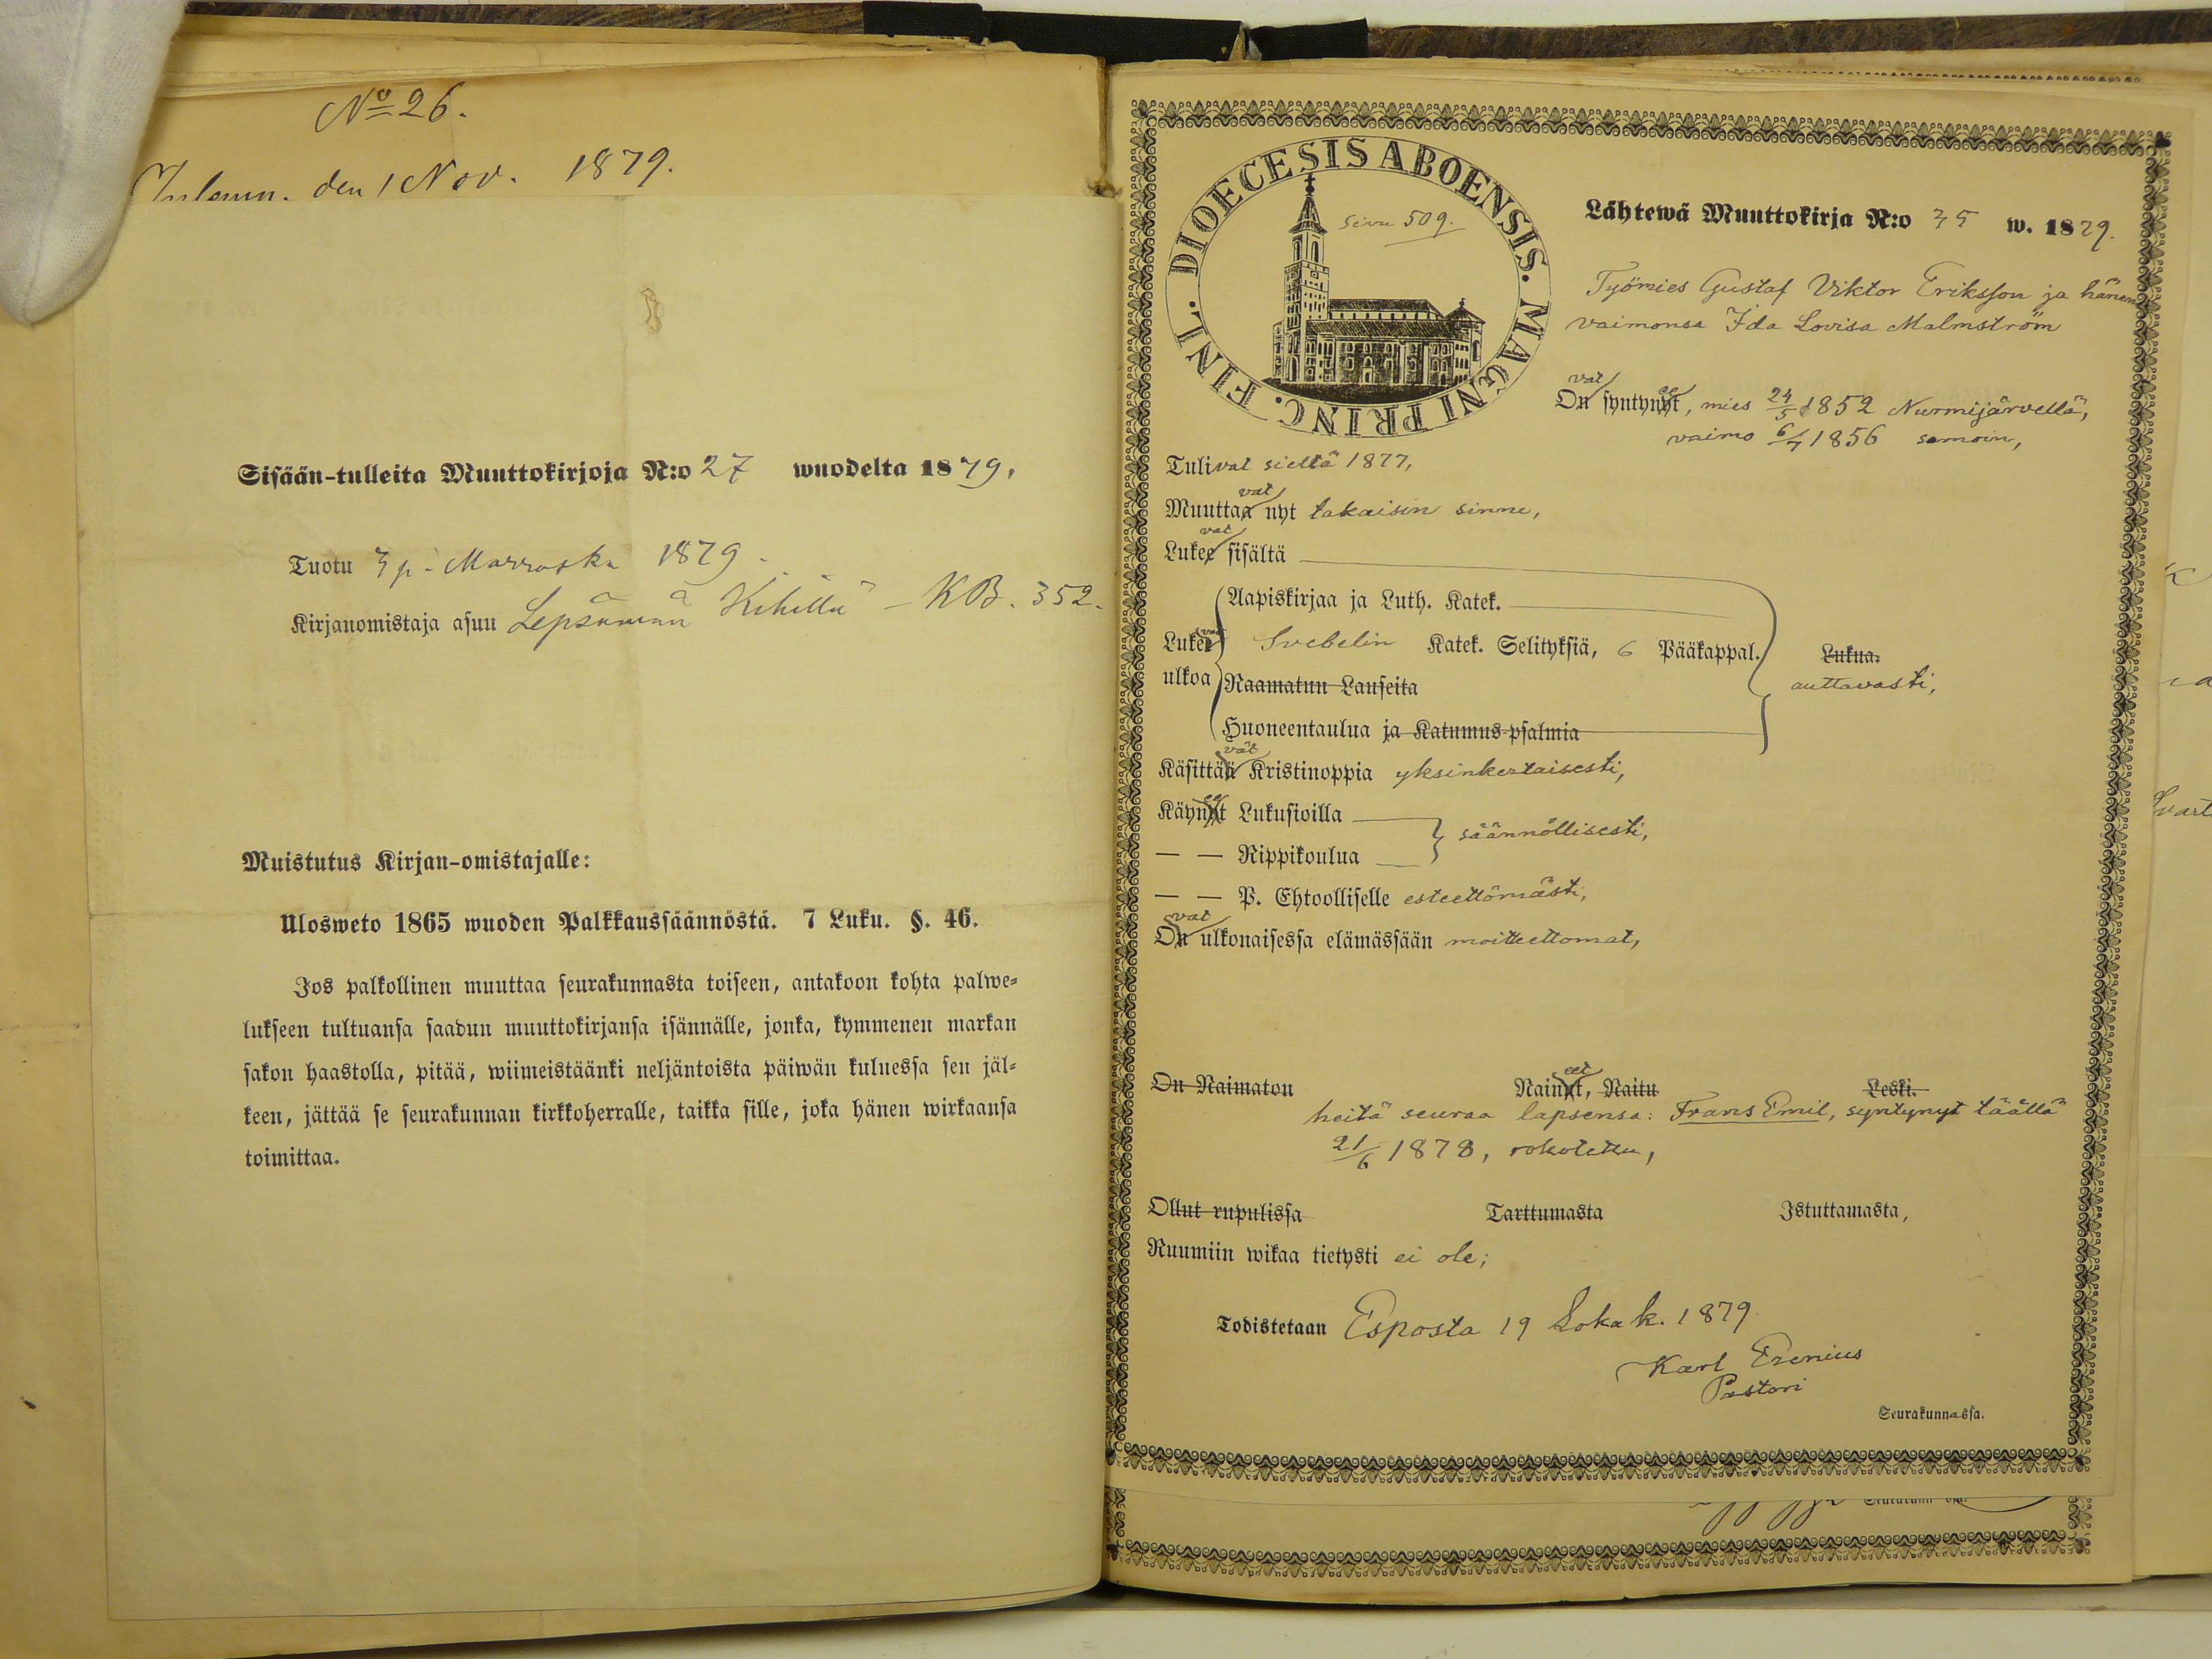 No 26.
Inlemn. den 1 Nov. 1879.
Sisään-tulleita Muuttokirjoja N:o 27 wuodelta 1879.
Tuotu 3 p. Marrask. 1879.
Kirjanomistaja asuu Lepsämän Kihillä – KB. 352.
Muistutus Kirjan-omistajalle:
Ulosweto 1865 wuoden Palkkaussäännöstä. 7 Luku. §. 46.
Jos palkollinen muuttaa seurakunnasta toiseen, antakoon kohta palwe-
lukseen tultuansa saadun muuttokirjansa isännälle, jonka, kymmenen markan
sakon haastolla, pitää, wiimeistäänki neljäntoista päiwän kuluessa sen jäl-
keen, jättää se seurakunnan kirkkoherralle, taikka sille, joka hänen wirkaansa
toimittaa.
DIOECESIS ABOENSIS. MAGNI PRINC. FINL.
Sivu 509.
Lähtewä Muuttokirja N:o 35 w. 1879.
Työmies Gustaf Viktor Eriksson ja hänen
vaimonsa Ida Lovisa Malmström
Ovat syntyneet, mies 24/5 1852 Nurmijärvellä,
vaimo 6/7 1856 samoin,
Tulivat sieltä 1877,
Muuttavat nyt takaisin sinne,
Lukevat sisältä
Aapiskirjaa ja Luth. Katek.
Lukevat Svebelin Katek. Selityksiä, 6 Pääkappal. Lukua.
ulkoa Raamatun Lauseita auttavasti,
Huoneentaulua ja Katumus-psalmia
Käsittävät Kristinoppia yksinkertaisesti,
Käyneet Lukusioilla
säännöllisesti,
— — Rippikoulua
— — P. Ehtoolliselle esteettömästi,
Ovat ulkonaisessa elämässään moitteettomat,
On Naimaton Naineet, Naitu Leski.
heitä seuraa lapsensa: Frans Emil, syntynyt täällä
21/6 1878, rokotettu,
Ollut rupulissa Tarttumasta Istuttamasta,
Ruumiin wikaa tietysti ei ole;
Todistetaan Esposta 19 Lokak. 1879.
Karl Erenius
Pastori
Seurakunnassa.